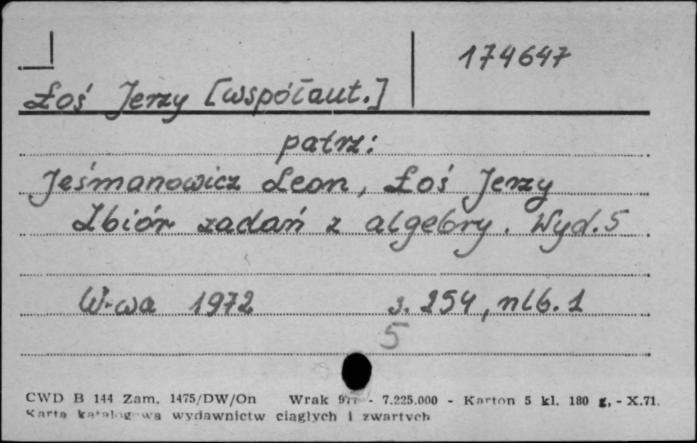 174647
Łoś Jerzy [współaut.]
patrz:
Jeśmanowicz Leon, Łoś Jerzy
Zbiór zadań z algebry. Wyd. 5
W-wa 1972 s. 254, nlb. 1
5
CWD B 144 Zam. 1475/DW/On Wrak - 7.225.000 - Karton 5 kl. 180 g, - X.71.
Karta katalogowa wydawnictw ciągłych i zwartych